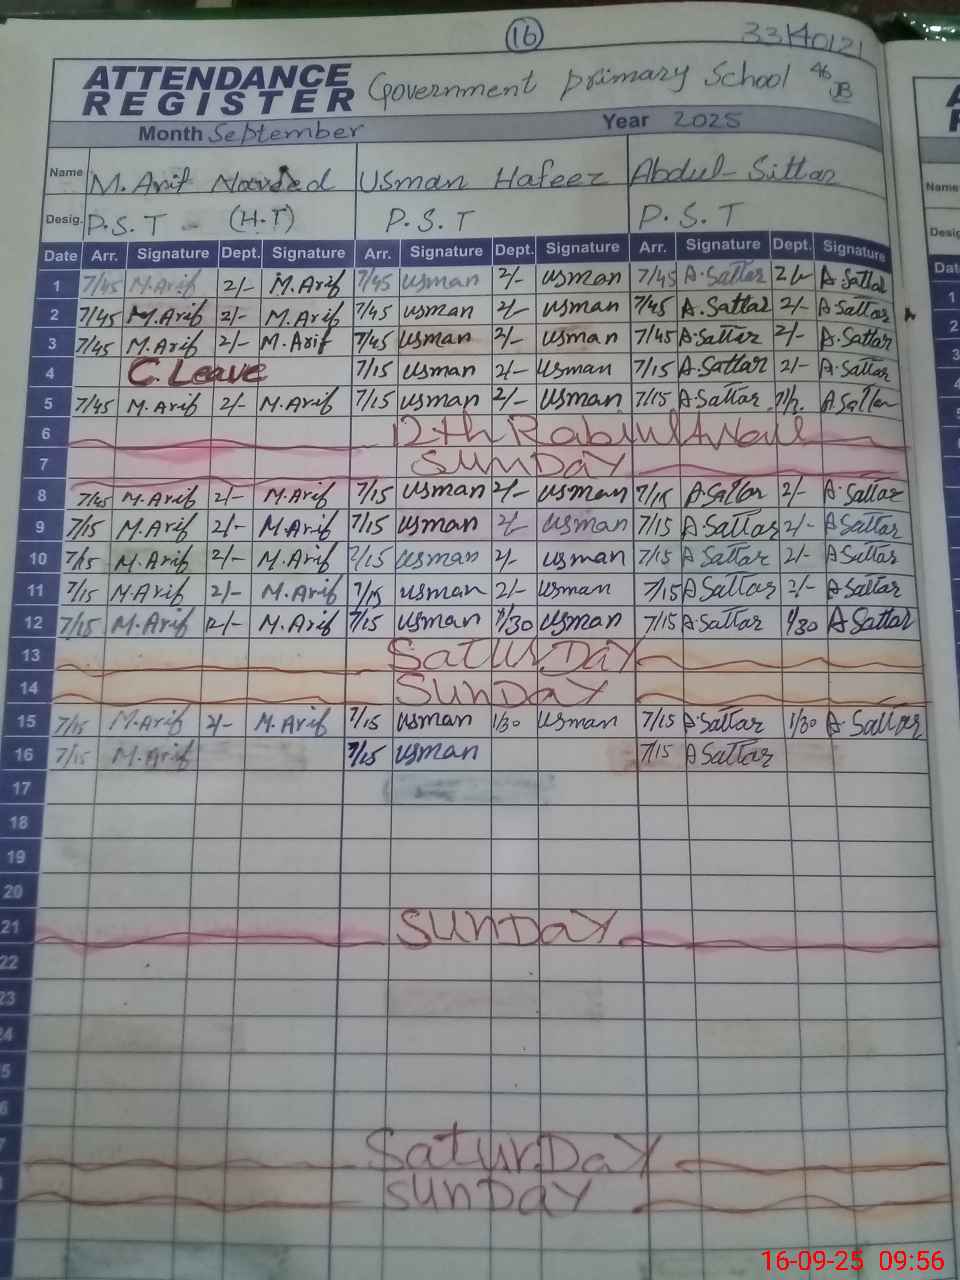 16
33140121
ATTENDANCE REGISTER Government Primary School 46 JB
Month September Year 2025
Name M. Arif Naveed Usman Hafeez Abdul-Sittar
Desig. P.S.T - (H.T) P.S.T P.S.T
Date Arr. Signature Dept. Signature Arr. Signature Dept. Signature Arr. Signature Dept. Signature
1 7/45 M.Arif 2/- M.Arif 7/45 usman 2/- usman 7/45 A.Sattar 2/- A.Sattar
2 7/45 M.Arif 2/- M.Arif 7/45 usman 2/- usman 7/45 A.Sattar 2/- A.Sattar
3 7/45 M.Arif 2/- M.Arif 7/45 usman 2/- usman 7/45 A.Sattar 2/- A.Sattar
4 C.Leave 7/15 usman 2/- usman 7/15 A.Sattar 2/- A.Sattar
5 7/45 M.Arif 2/- M.Arif 7/15 usman 2/- usman 7/15 A.Sattar A.Sattar
6 12th Rabiul Awal
7 SUNDAY
8 7/45 M.Arif 2/- M.Arif 7/15 usman 2/- usman 7/15 A.Sattar 2/- A.Sattar
9 7/15 M.Arif 2/- M.Arif 7/15 usman 2/- usman 7/15 A Sattar 2/- A Sattar
10 7/15 M.Arif 2/- M.Arif 7/15 usman 2/- usman 7/15 A Sattar 2/- A Sattar
11 7/15 M.Arif 2/- M.Arif 7/15 usman 2/- usman 7/15 A Sattar 2/- A Sattar
12 7/15 M.Arif 2/- M.Arif 7/15 usman 1/30 usman 7/15 A Sattar 1/30 A Sattar
13 SaturDaY
14 SUNDAY
15 7/15 M.Arif 2/- M.Arif 7/15 usman 1/30 usman 7/15 A Sattar 1/30 A.Sattar
16 7/15 M.Arif 7/15 usman 7/15 A Sattar
17
18
19
20
21 SUNDAY
22
23
24
5
6
7 SaturDaY
SUNDAY
16-09-25 09:56
Name
Desig
Dat
1
2
3
4
5
6